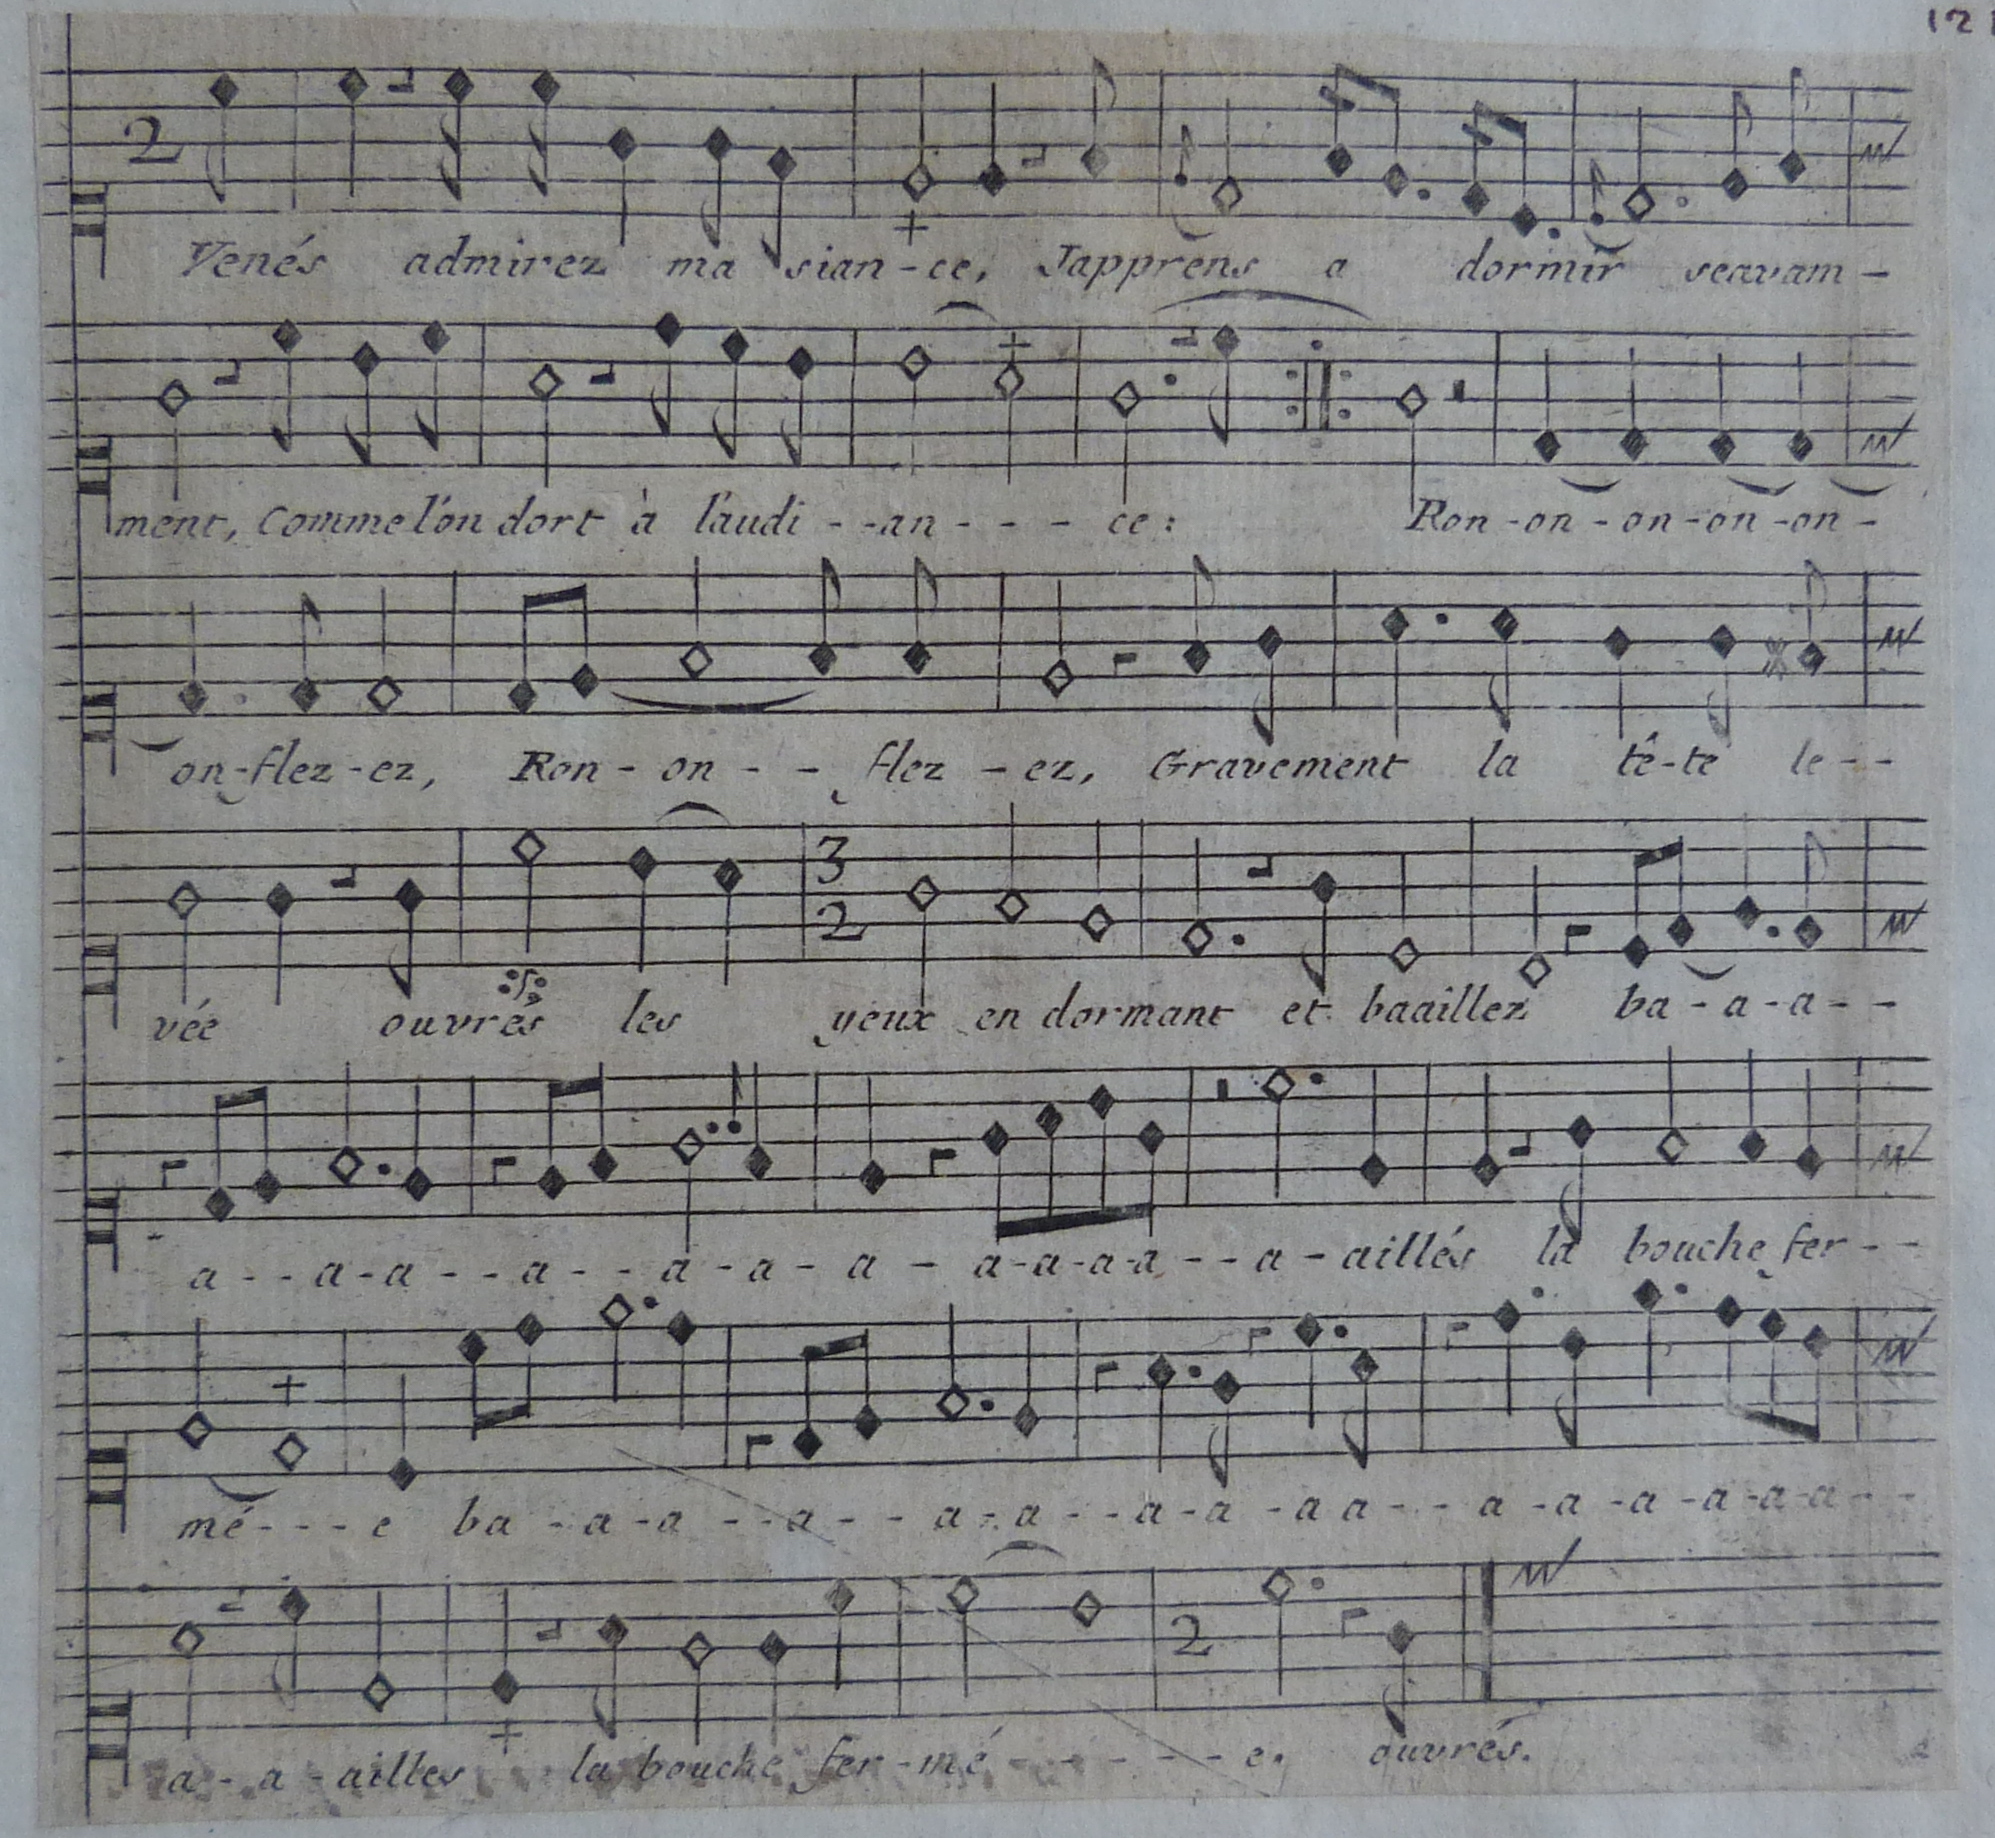 121
2
Venés admirez ma sian - ce, Japprens a dormir scavam -
ment, Comme l'on dort à l'audi - - an - - - ce : Ron - on - on - on - on -
on - flez - ez, Ron - on - - flez - ez, Gravement la tê - te le - -
3
2
vée ouvrés les yeux en dormant et baaillez ba - a - a - -
a - - a - a - - a - - a - a - a - a - a - a - a - - a - aillés la bouche fer - -
mé - - - e ba - a - a - - a - - a - a - - a - a - a a - - a - a - a - a - a - a - -
2
a - a - ailles la bouche fer - mé - - - - - e. ouvrés.